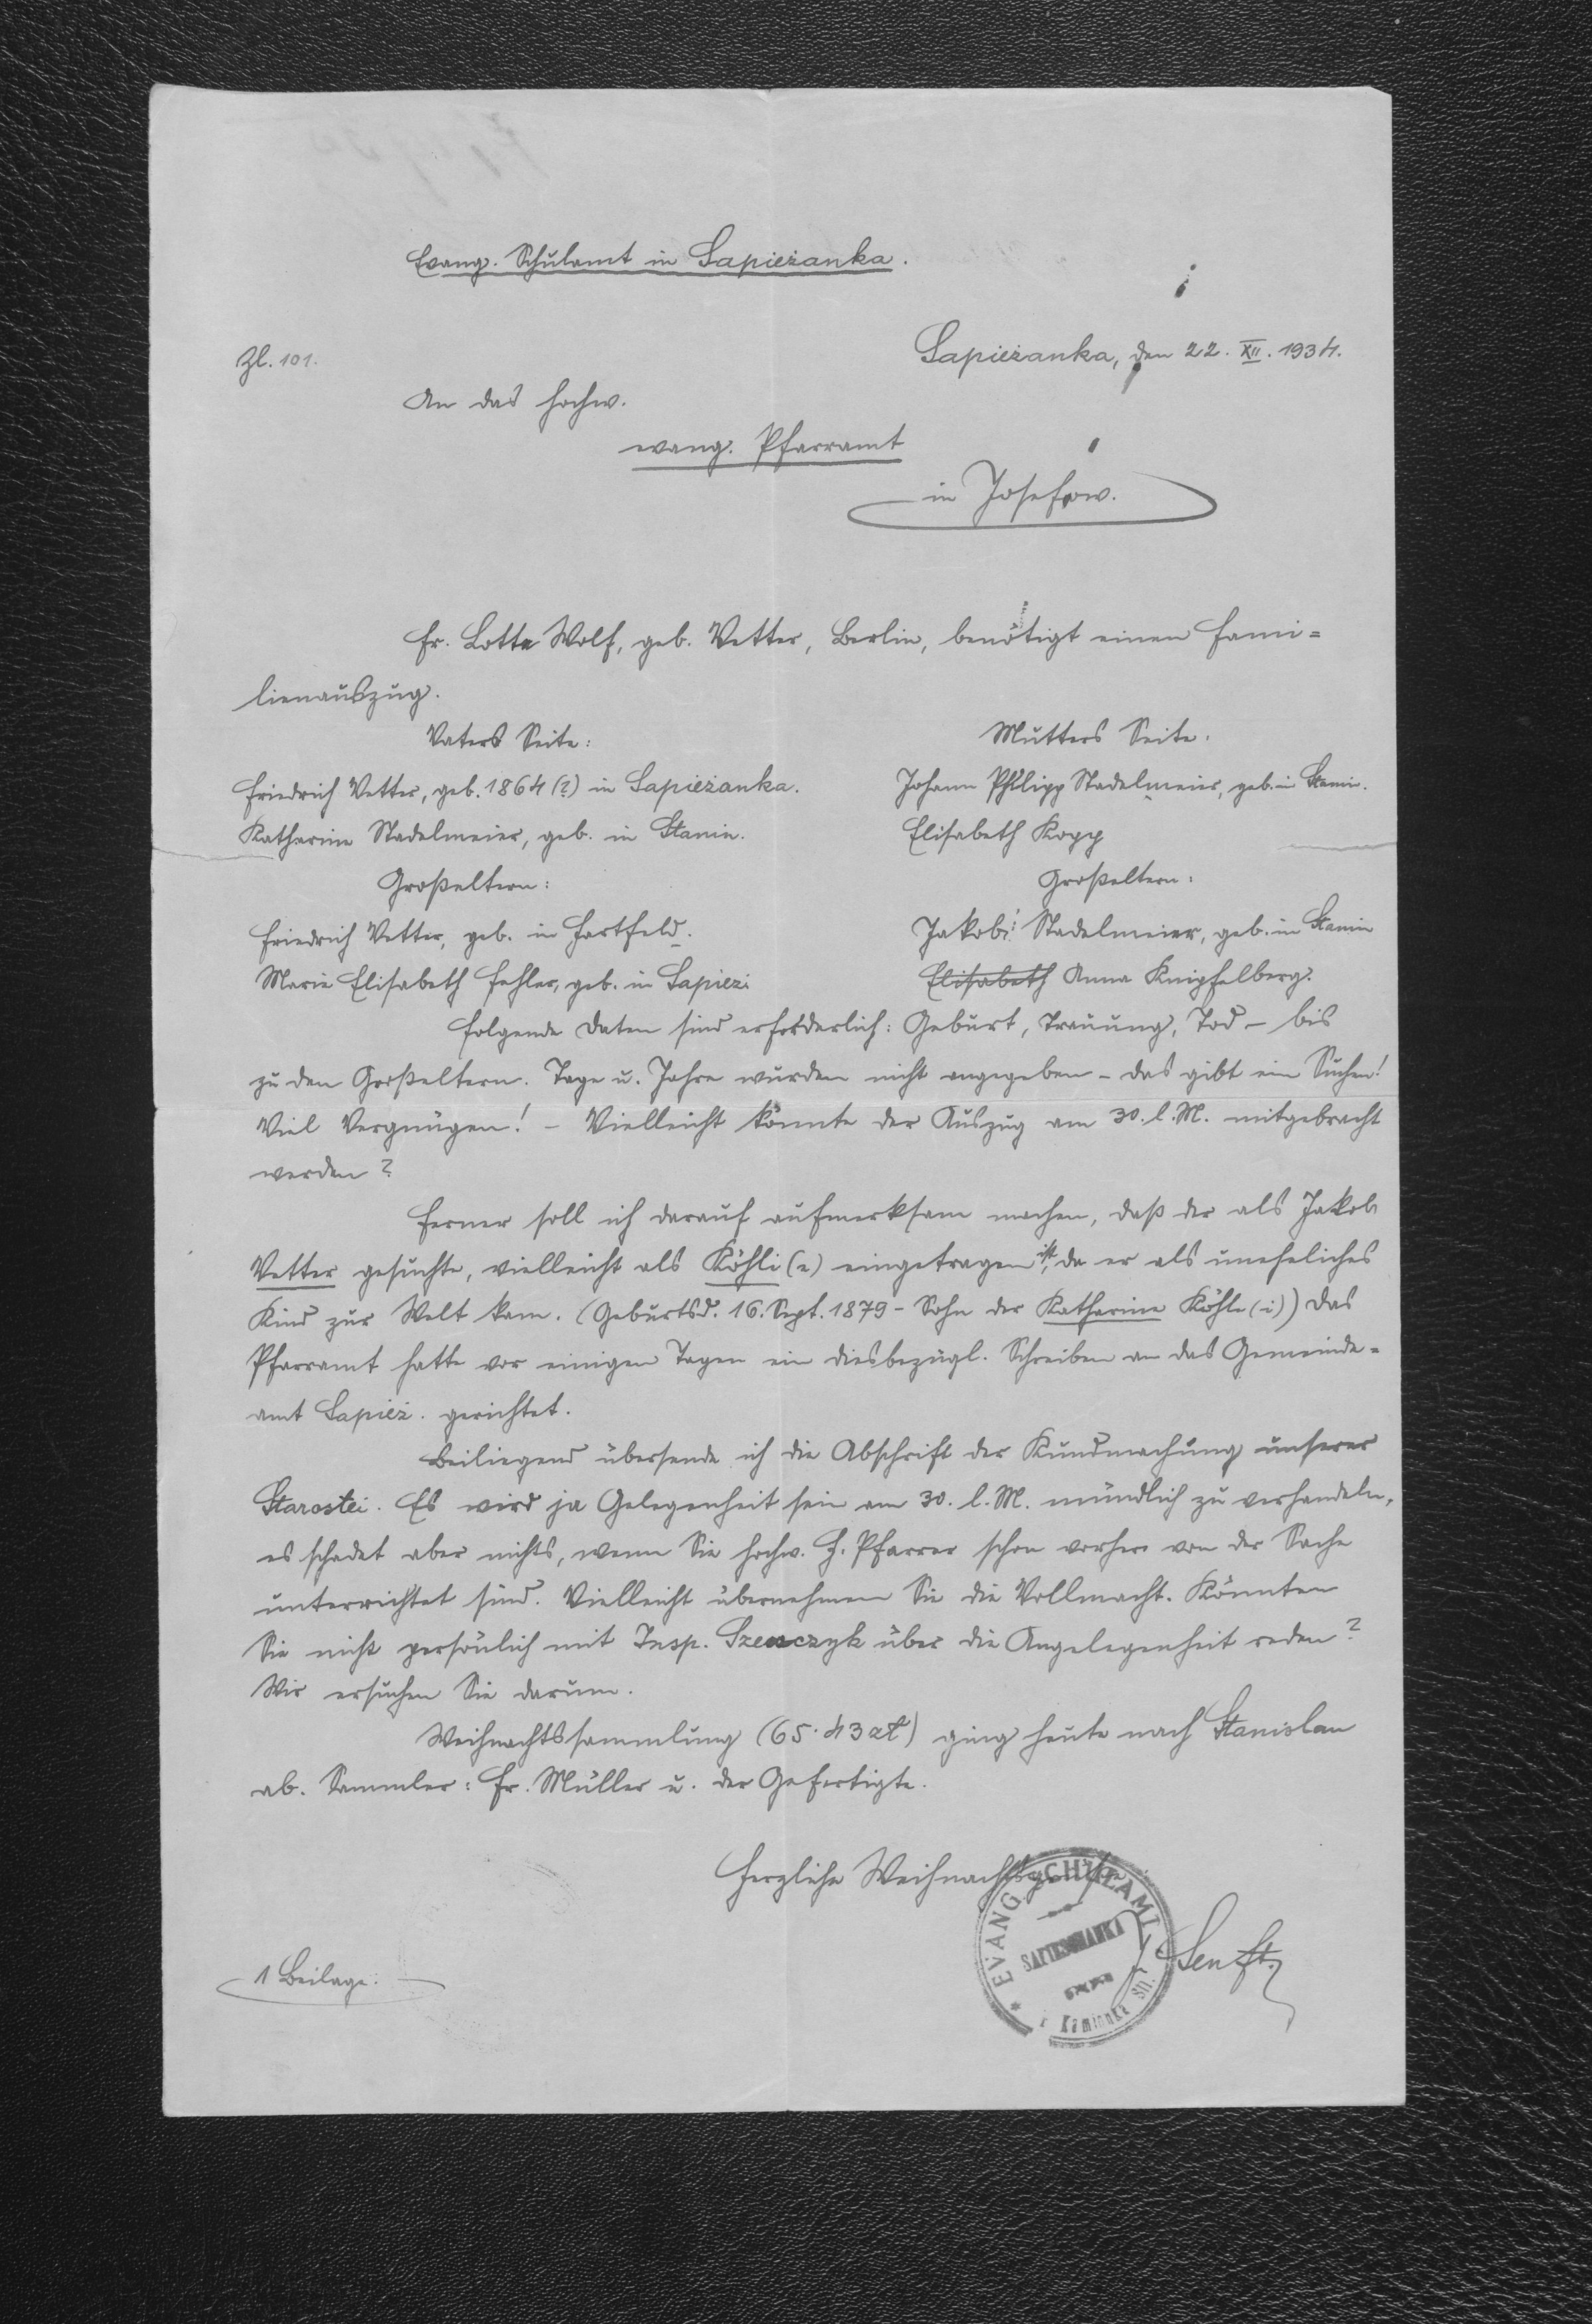 Evang. Schulamt in Sapieżanka.
Zl. 101.
Sapieżanka, den 22. XII. 1934.
An das hochw.
evang. Pfarramt
in Josefow.
Fr. Lotte Wolf, geb. Vetter, Berlin, benötigt einen Fami=
lienauszug.
Vaters Seite:
Mutters Seite.
Friedrich Vetter, geb. 1864 (?) in Sapieżanka.
Johann Philipp Stadelmeier, geb. in Stanin.
Katharine Stadelmeier, geb. in Stanin.
Elisabeth Kopp
Großeltern:
Großeltern:
Friedrich Vetter, geb. in Hartfeld.
Jakob Stadelmeier, geb. in Stanin
Marie Elisabeth Fehler, geb. in Sapież.
Elisabeth Anna Knipfelberg.
Folgende Daten sind erforderlich: Geburt, Trauung, Tod – bis
zu den Großeltern. Tage u. Jahre wurden nicht angegeben – das gibt ein Suchen!
Viel Vergnügen! – Vielleicht könnte der Auszug am 30. l. M. mitgebracht
werden?
Ferner soll ich darauf aufmerksam machen, daß der als Jakob
Vetter gesuchte, vielleicht als Köhli (e) eingetragen ist, da er als uneheliches
Kind zur Welt kam. (Geburtsd. 16. Sept. 1879 – Sohn der Katharine Köhle (i)) Das
Pfarramt hatte vor einigen Tagen ein diesbezügl. Schreiben an das Gemeinde=
amt Sapież. gerichtet.
Beiliegend übersende ich die Abschrift der Kundmachung unserer
Starostei. Es wird ja Gelegenheit sein am 30. l. M. mündlich zu verhandeln,
es schadet aber nichts, wenn Sie hochw. H. Pfarrer schon vorher von der Sache
unterrichtet sind. Vielleicht übernehmen Sie die Vollmacht. Könnten
Sie nicht persönlich mit Insp. über die Angelegenheit reden?
Wir ersuchen Sie darum.
Weihnachtssammlung (65·43 zł) ging heute nach Stanislau
ab. Sammler: Fr. Müller u. der Gefertigte.
Herzliche Weihnachtsgrüße
EVANG. SCHULAMT
Kaminka
Senft.
1 Beilage.